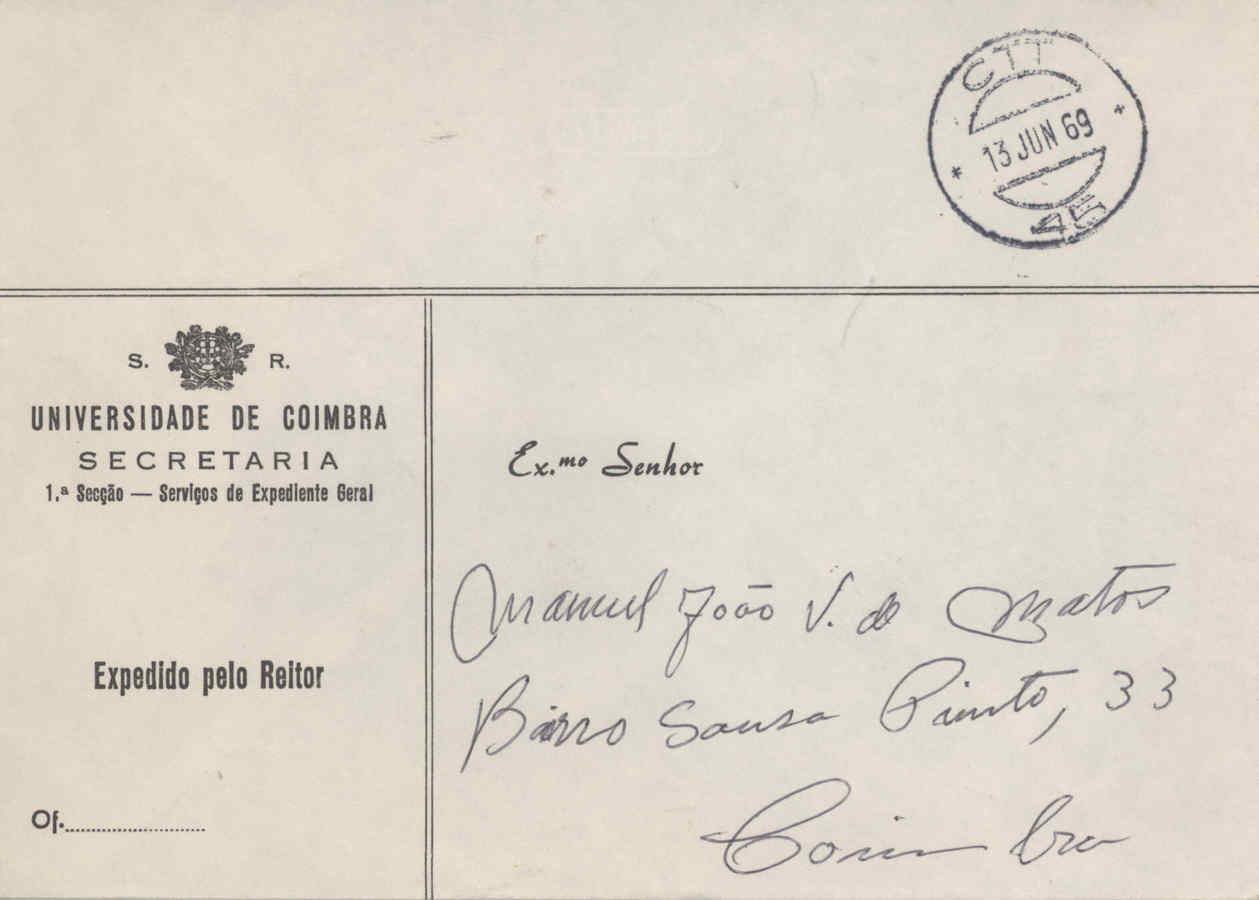 CTT
13 JUN 69
45
S. R.
UNIVERSIDADE DE COIMBRA
SECRETARIA
1.ª Secção — Serviços de Expediente Geral
Expedido pelo Reitor
Of.........................
Ex.mo Senhor
Manuel João V. de Matos
Bairro Sousa Pinto, 33
Coimbra